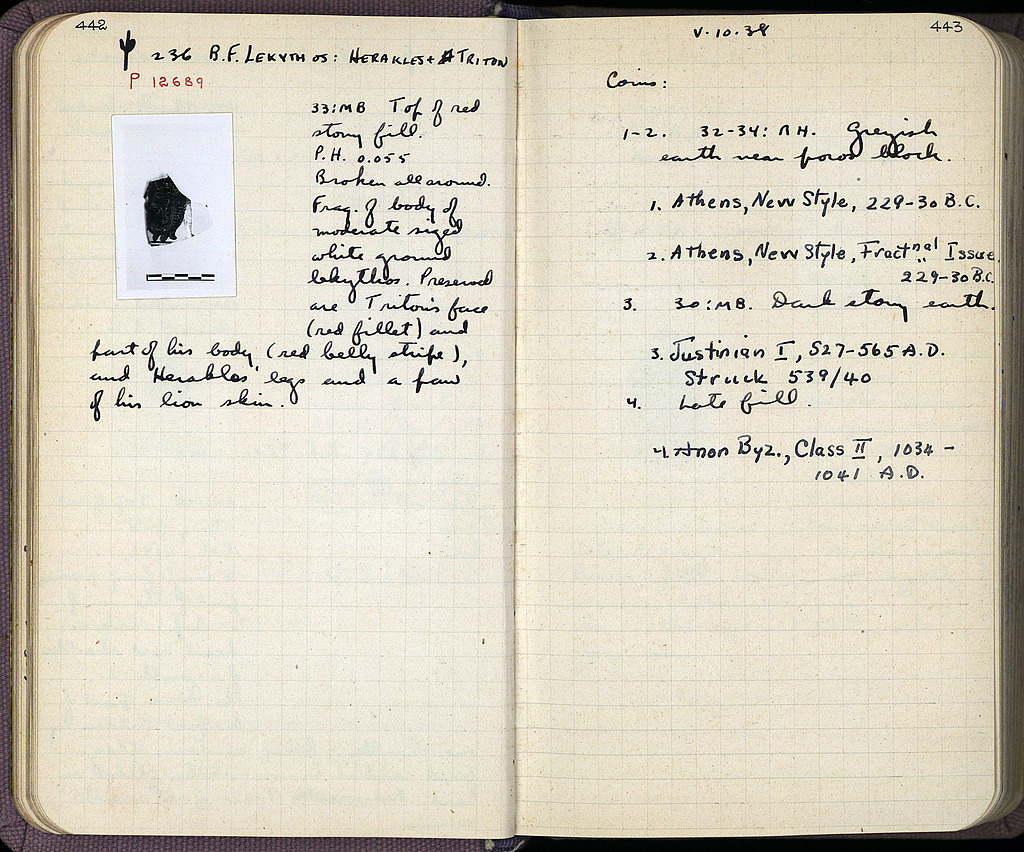 442
Ψ 236 B.F. LEKYTHOS: HERAKLES + TRITON
P 12689
33:MB Top of red
stony fill.
P.H. 0.055
Broken all around.
Frag. of body of
moderate sized
white ground
lekythos. Preserved
are Triton's face
(red fillet) and
part of his body (red belly stripe),
and Herakles' legs and a paw
of his lion skin.
443
V.10.38
Coins:
1-2. 32-34: ΛH. Greyish
earth near poros block.
1. Athens, New Style, 229-30 B.C.
2. Athens, New Style, Fractnal Issue
229-30 B.C.
3. 30:MB. Dark stony earth.
3. Justinian I, 527-565 A.D.
Struck 539/40
4. Late fill.
4. Anon Byz., Class II, 1034 -
1041 A.D.